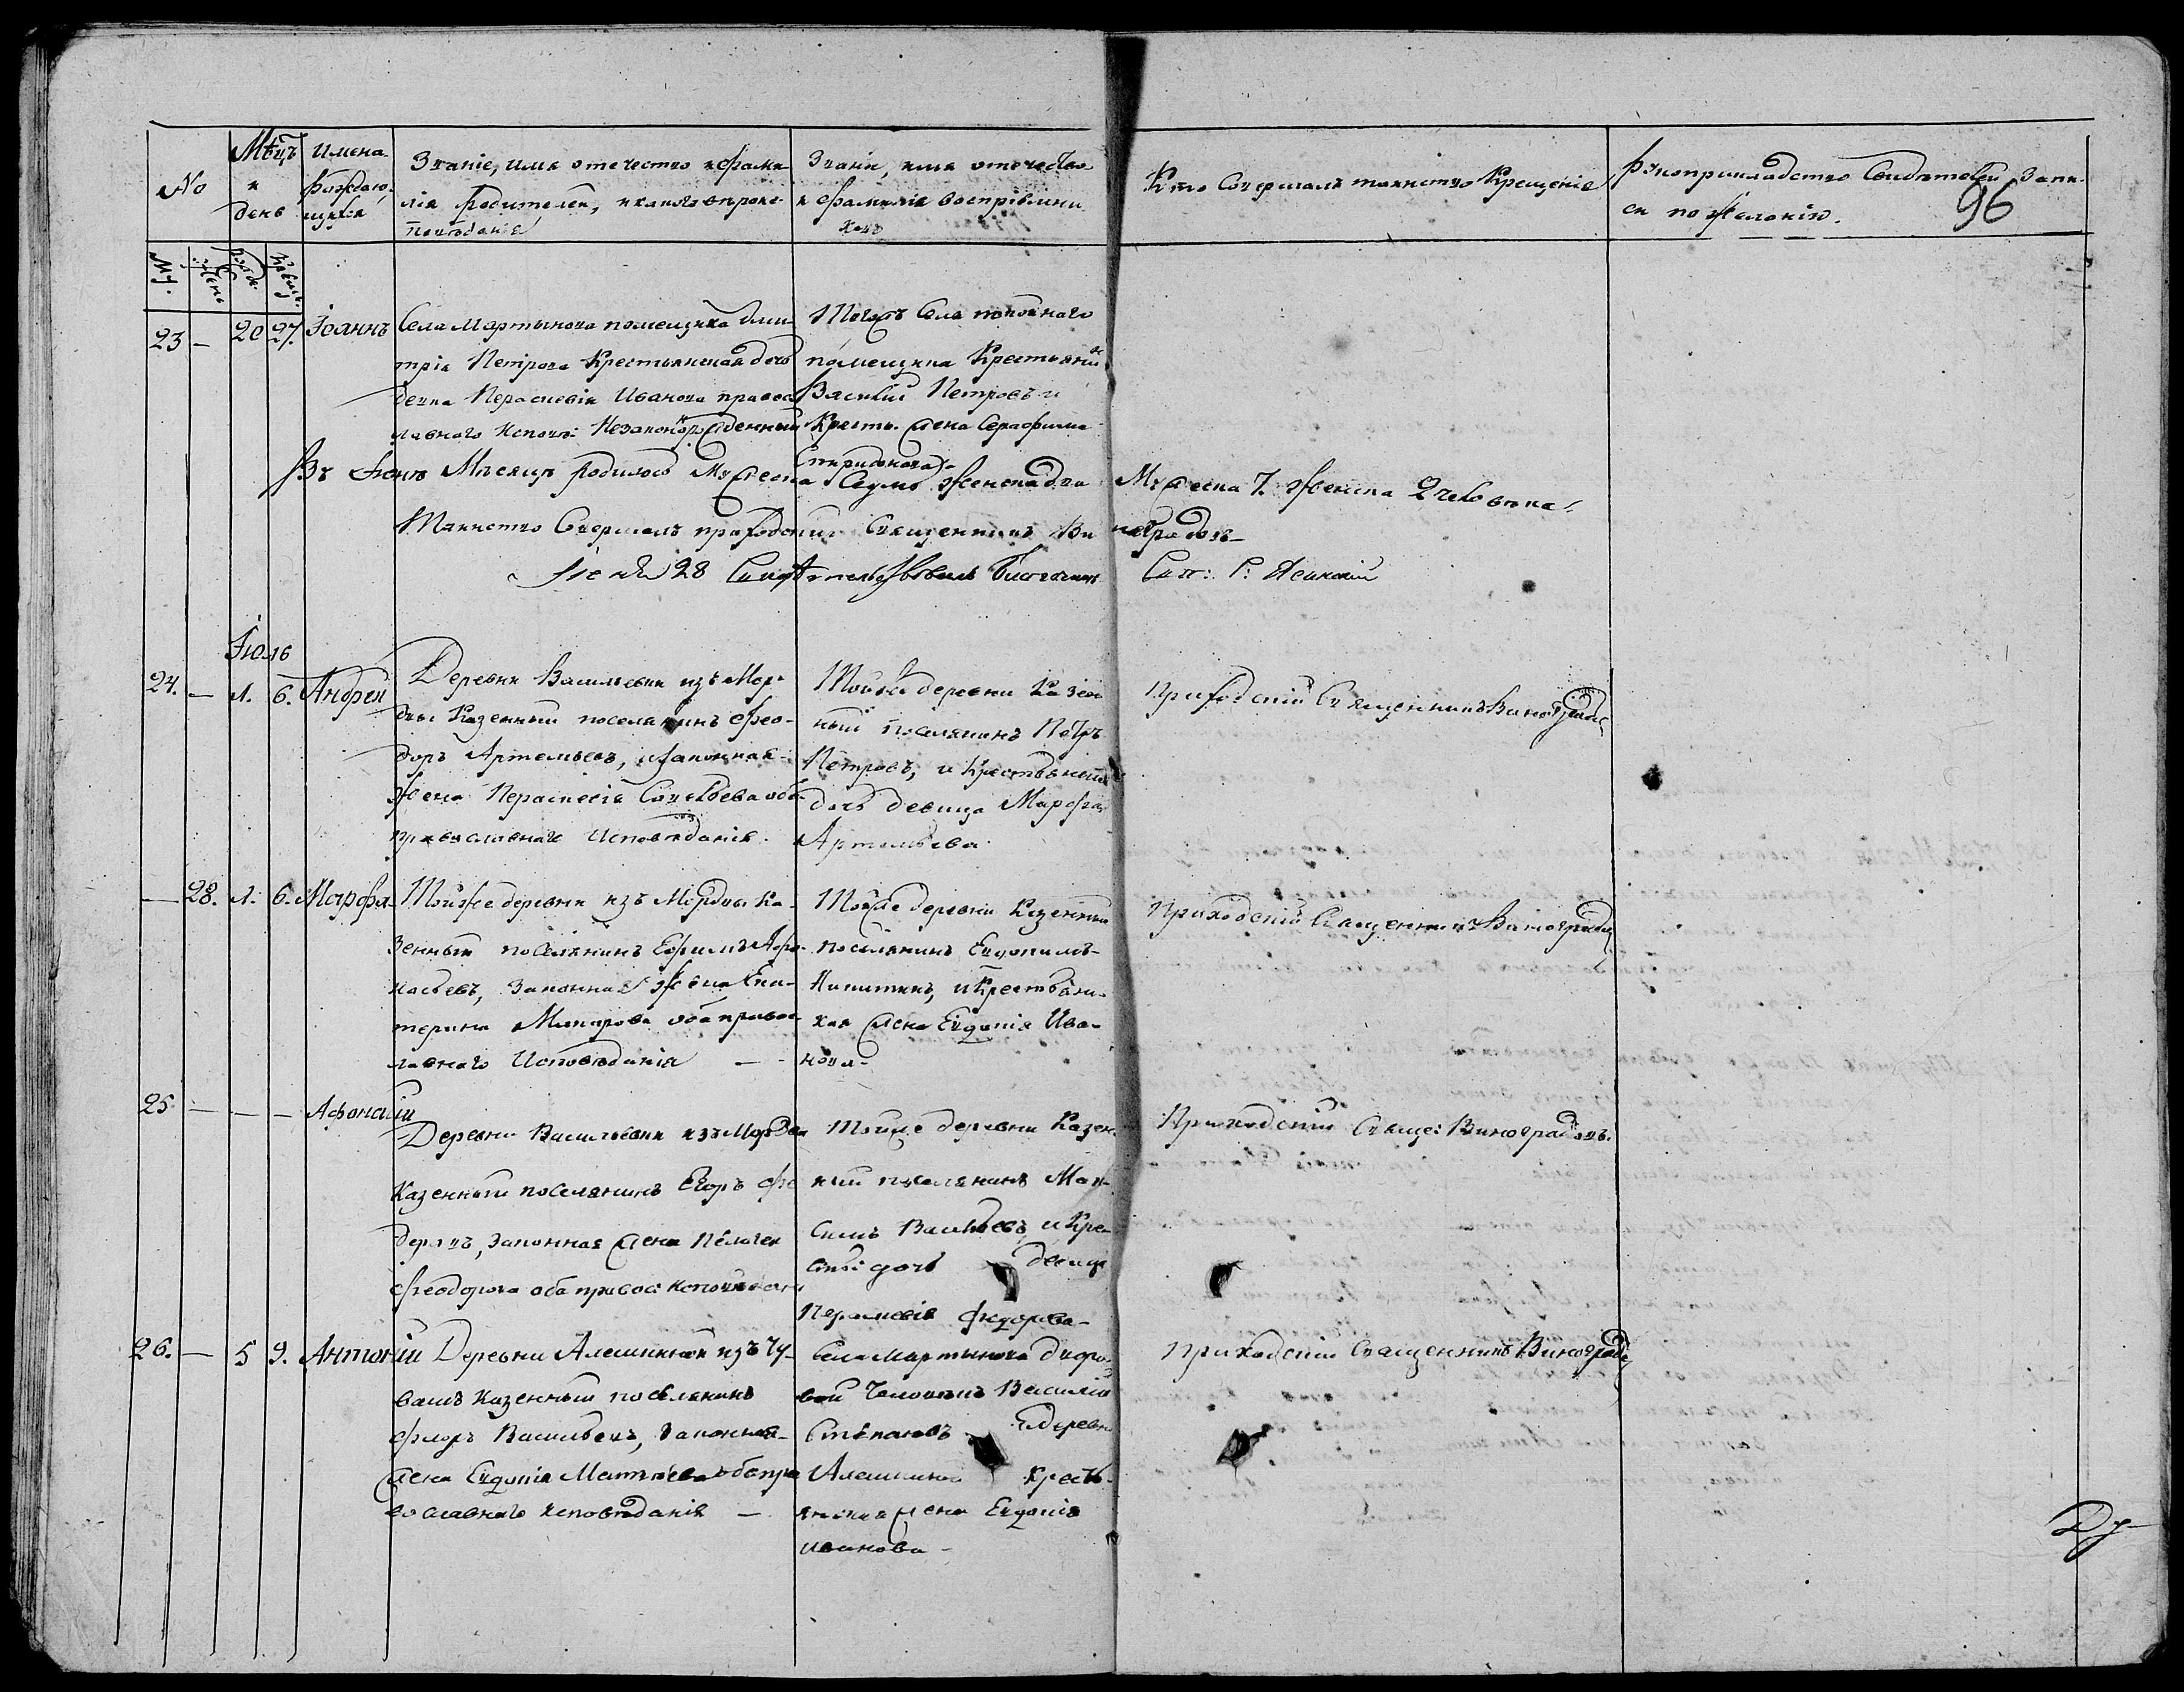 No
Мѣцъ
и
день
Имена
Рождаю-
щихся
Званіе, имя отечество и фами-
лія Родителей, и какого вѣроис-
повѣданія
Званіе, имя отечество
и фамилія воспріемни
ковъ
Кто Совершалъ таинство Крещенія
Рукоприкладство Свидѣтелей Запи-
си по желанію.
96
Му.
жен.
рожд.
крещ.
23 — 20 27. Іоаннъ
Села Мартынова помещика Дми-
трія Петрова Крестьянская дочь
девка Параскевія Иванова правос
лавного Испов: Незаконнорожденный
Тогожъ Села показаного
помещика Крестьянин
Василій Петровъ и
Кресть. жена Серафима
Спиридонова
Въ Іюнѣ Мѣсяцѣ родилось Мужеска Седмь женска два
Мужеска 7. женска 2 человѣка
Таинство Совершалъ приходскій Священникъ Виноградовъ
Іюня 28 Свидѣтельствовалъ Благочинн
Свящ: Г: Ясинскій
Іюль
24. — 1. 6. Андрей
Деревни Васильевки изъ Мор-
двы Казенный поселянинъ Фео-
доръ Артемьевъ, и законная
жена Параскевія Савельева оба
православнаго Исповѣданія.
Тойже деревни Казен
ный поселянинъ Петръ
Петровъ, и Крестьянская
дочь девица Марфа
Артемьева
Приходскій Священникъ Виноградовъ
— 28. 1. 6. Марфа
Тойже деревни изъ Мордвы Ка-
зенный поселянинъ Ефимъ Афа-
насьевъ, Законная жена Ека-
терина Макарова оба правос
лавнаго Исповѣданія —
Тойже деревни Казенный
поселянинъ Евдокимъ
Никитинъ, и Крестьянс-
кая жена Евдокія Ива-
нова
Приходскій Священникъ Виноградовъ
25 — — — Афонасій
Деревни Васильевки изъ Мордвы
Казенный поселянинъ Егоръ Фе
деровъ, законная жена Пелагея
Феодорова оба правос: исповѣдан
Тойже деревни Казен.
ный поселянинъ Мак-
симъ Васильевъ и Кре-
стьян: дочь девица
Параскевія Федорова
Приходскій Свяще: Виноградовъ.
26. — 5 9. Антоній
Деревни Алешкиной изъ Чу-
вашъ казенный поселянинъ
Флоръ Васильевъ, Законная
жена Евдокія Матвѣева оба пра
вославнаго исповѣданія —
Села Мартынова дворо-
вой Человѣкъ Василій
Степановъ и деревни
Алешкиной Кресть-
янская жена Евдокія
Иванова
Приходскій Священникъ Виноградов